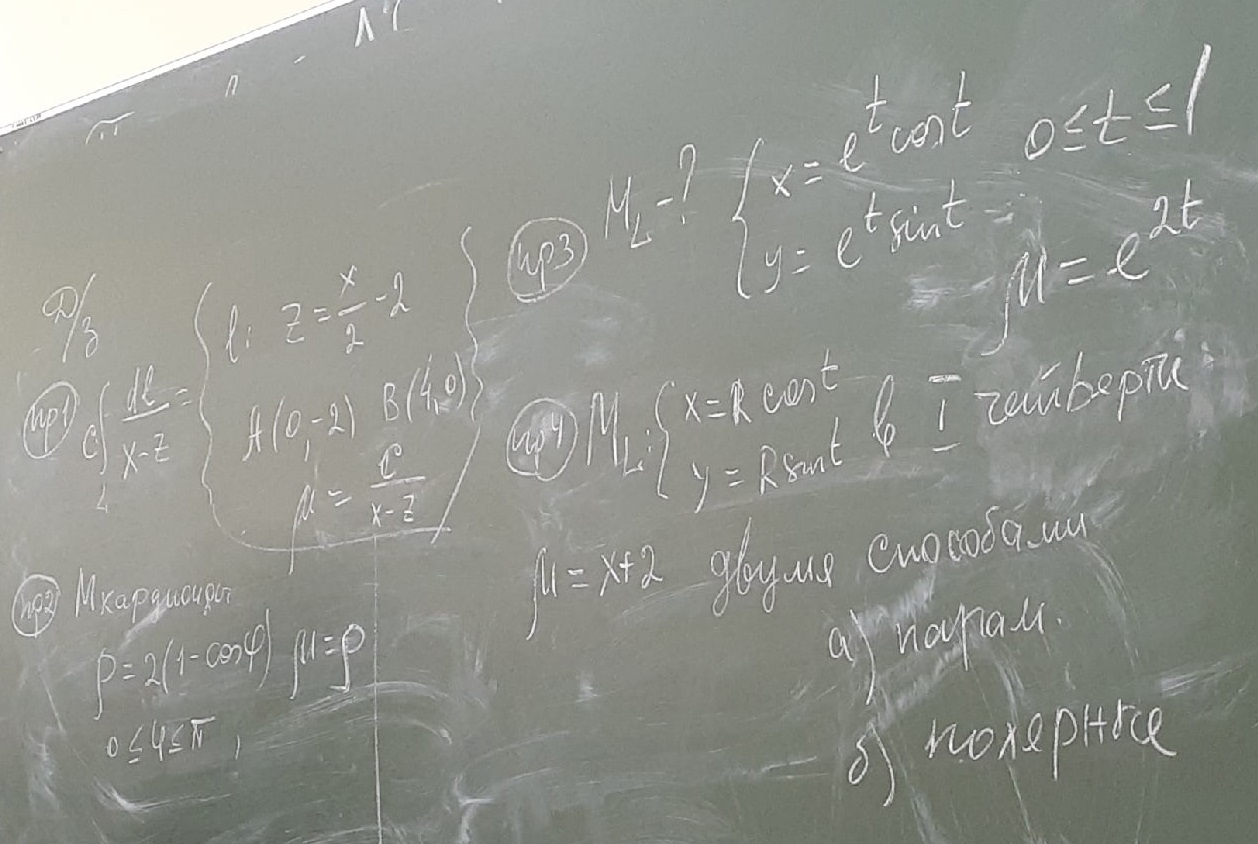 Д/з
пр1 C ∫_L dl/(x-z) = { l: z = x/2 - 2
A(0,-2) B(4,0)
μ = C/(x-z) }
пр2 M кардиоиды
ρ = 2(1-cosφ) μ=ρ
0≤φ≤π,
пр3 M_L-? { x = e^t cost 0≤t≤1
y = e^t sint
μ = e^{2t}
пр4 M_L: { x = R cost
y = R sint в I четверти
μ = x+2 двумя способами
а) парам.
б) полярные